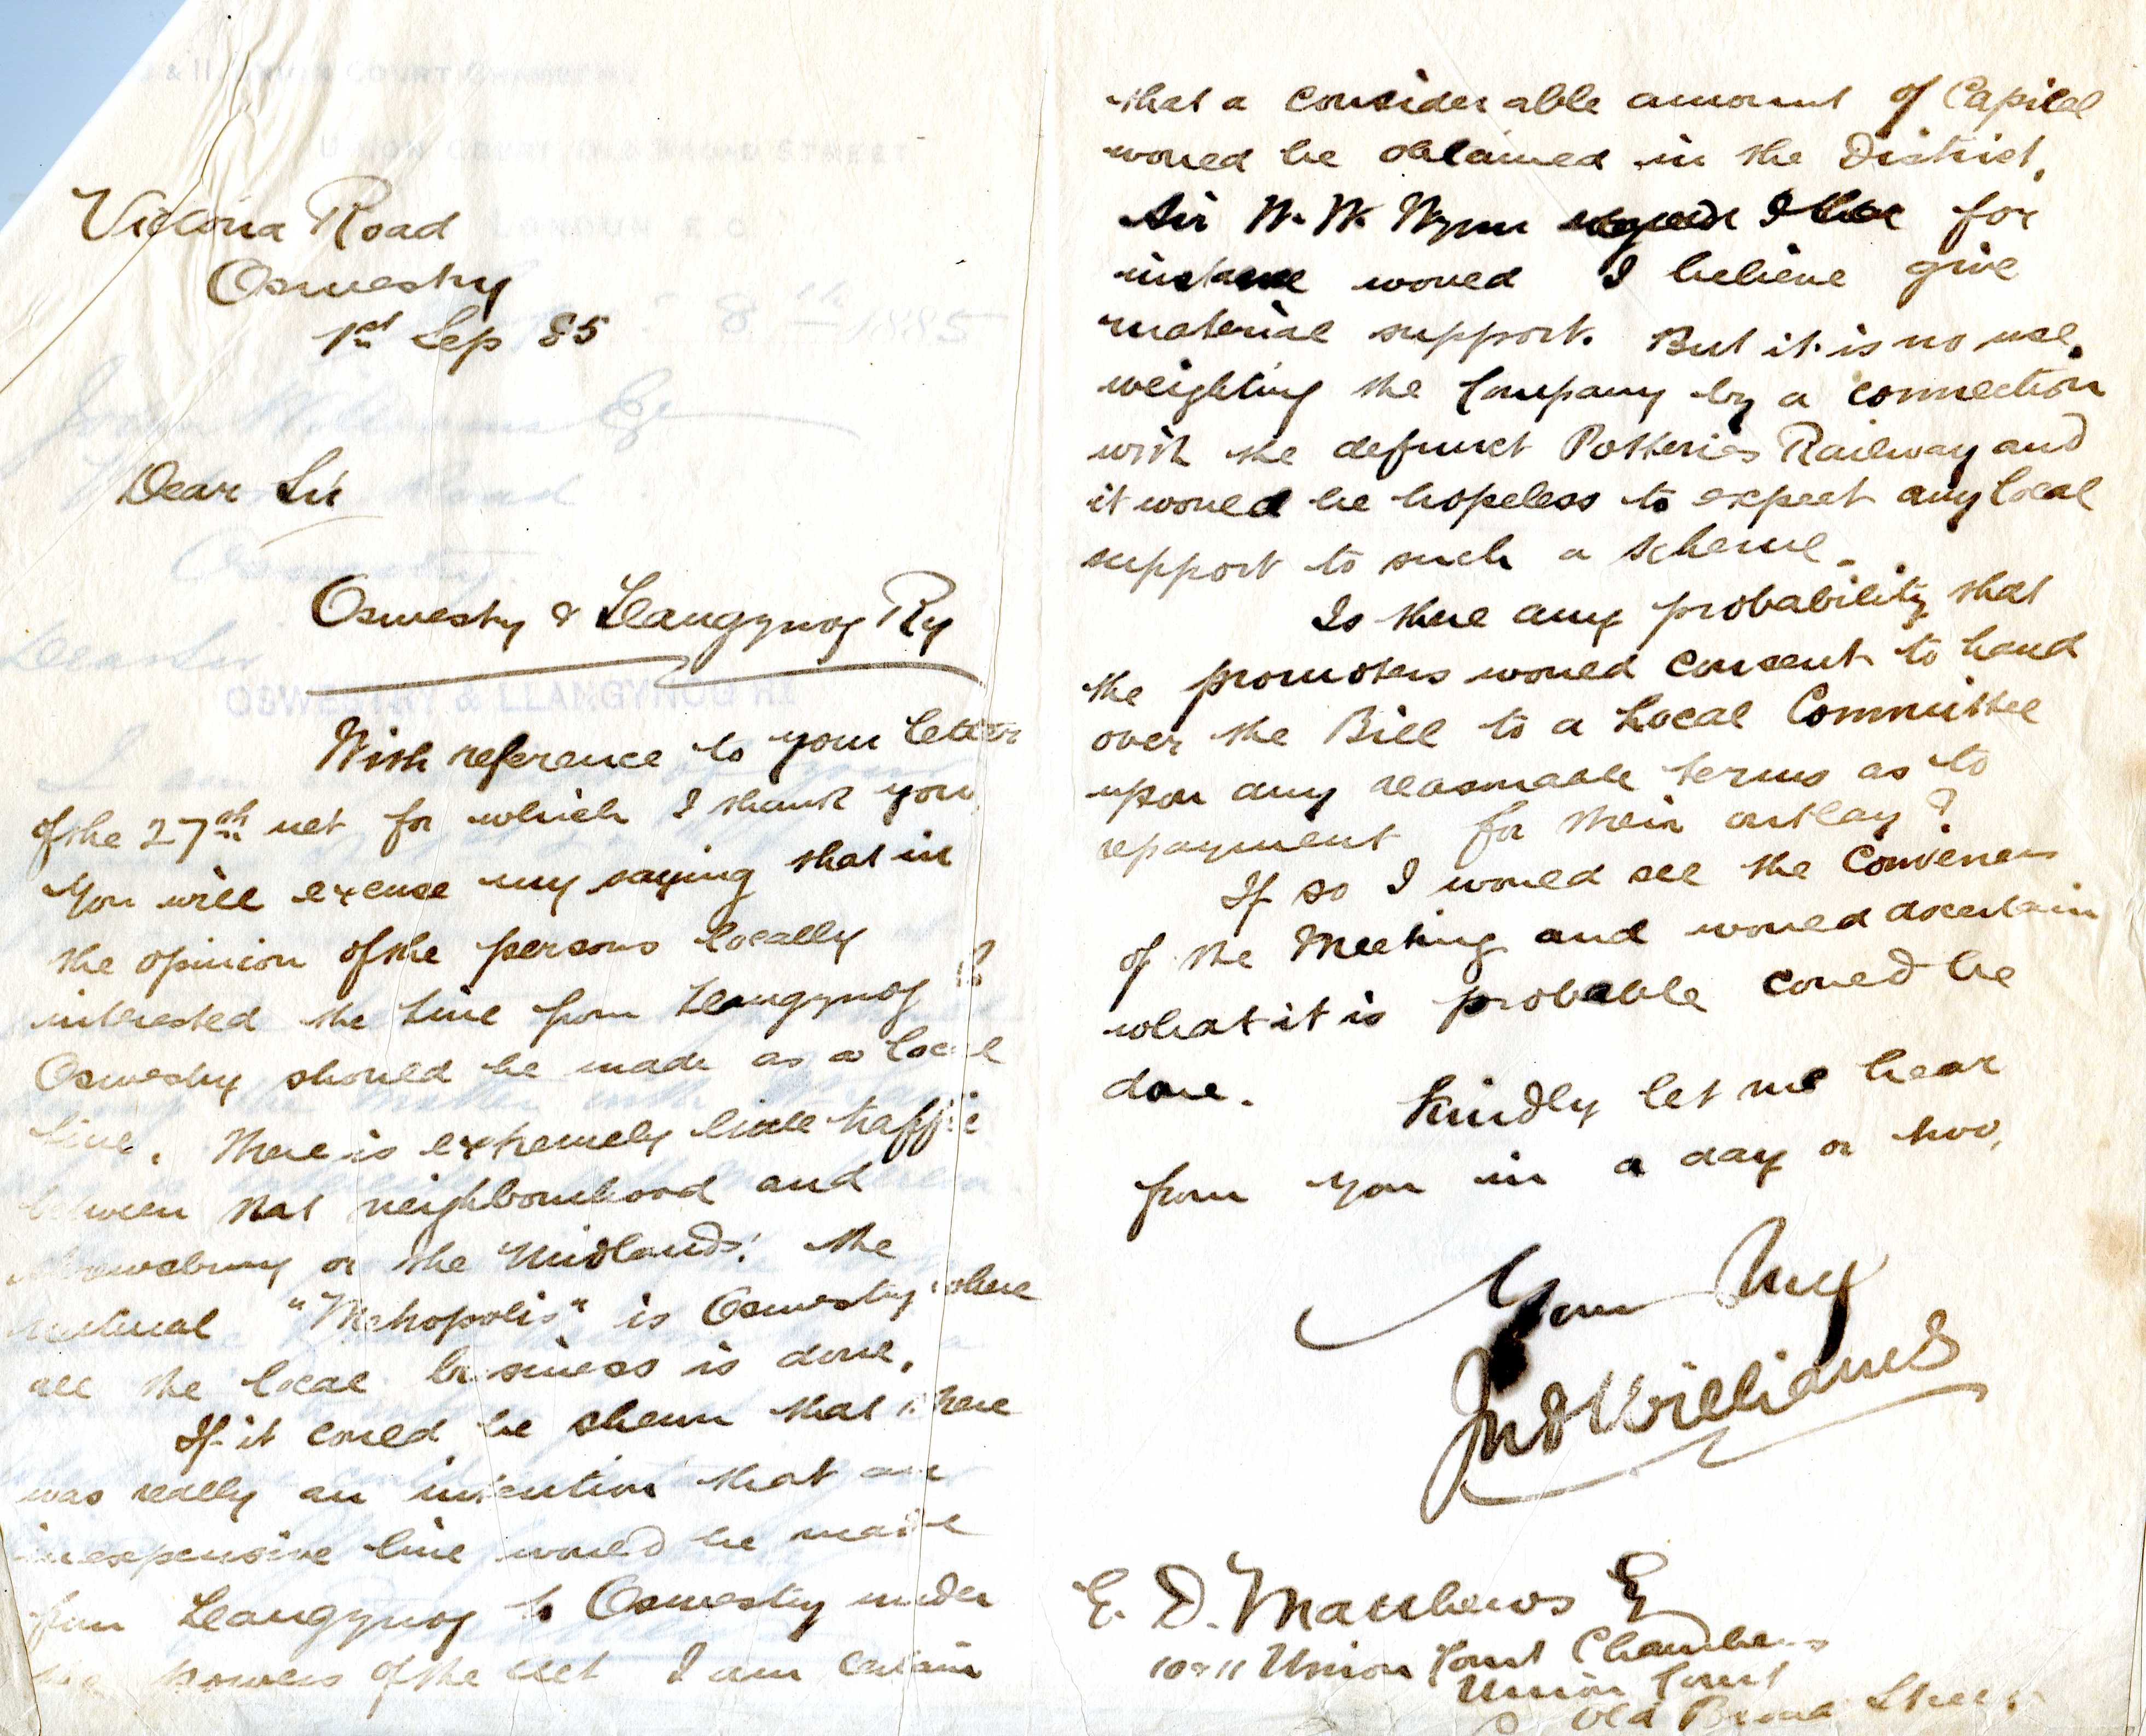 Victoria Road
Oswestry
1st Sep 85
Dear Sir
Oswestry & Llangynog Ry
With reference to your letter
of the 27th ult for which I thank you
You will excuse my saying that in
the opinion of the persons locally
interested the line from Llangynog to
Oswestry should be made as a local
line. There is extremely little traffic
between that neighbourhood and
Shrewsbury or the Midlands: the
natural "Metropolis" is Oswestry where
all the local business is done.
If it could be shewn that there
was really an intention that an
inexpensive line would be made
from Llangynog to Oswestry under
the powers of the Act I am certain
that a considerable amount of Capital
would be obtained in the District.
Sir W. W. Wynn for
instance would I believe give
material support. But it is no use
weighting the Company by a connection
with the defunct Potteries Railway and
it would be hopeless to expect any local
support to such a scheme.
Is there any probability that
the promoters would consent to hand
over the Bill to a Local Committee
upon any reasonable terms as to
repayment for their outlay?
If so I would see the Conveners
of the Meeting and would ascertain
what it is probable could be
done. Kindly let me hear
from you in a day or two,
Yours truly
Jno Williams
E. D. Matthews Eq
10 & 11 Union Court Chambers
Union Court
Old Broad Street
& 11, UNION COURT CHAMBERS,
UNION COURT, OLD BROAD STREET
LONDON E.C.
8th 1885
John Williams Eq
Victoria Road
Oswestry.
Dear Sir
OSWESTRY & LLANGYNOG RY